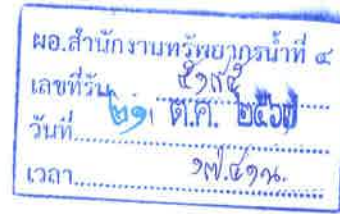 ผอ.สำนักงานทรัพยากรน้ำที่ ๔
เลขที่รับ
วันที่ ๒๑ ต.ค. ๒๕๖๗
เวลา ๑๗.๔๑น.